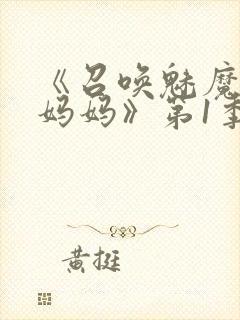 《召唤魅魔
妈妈》第1季
黄挺